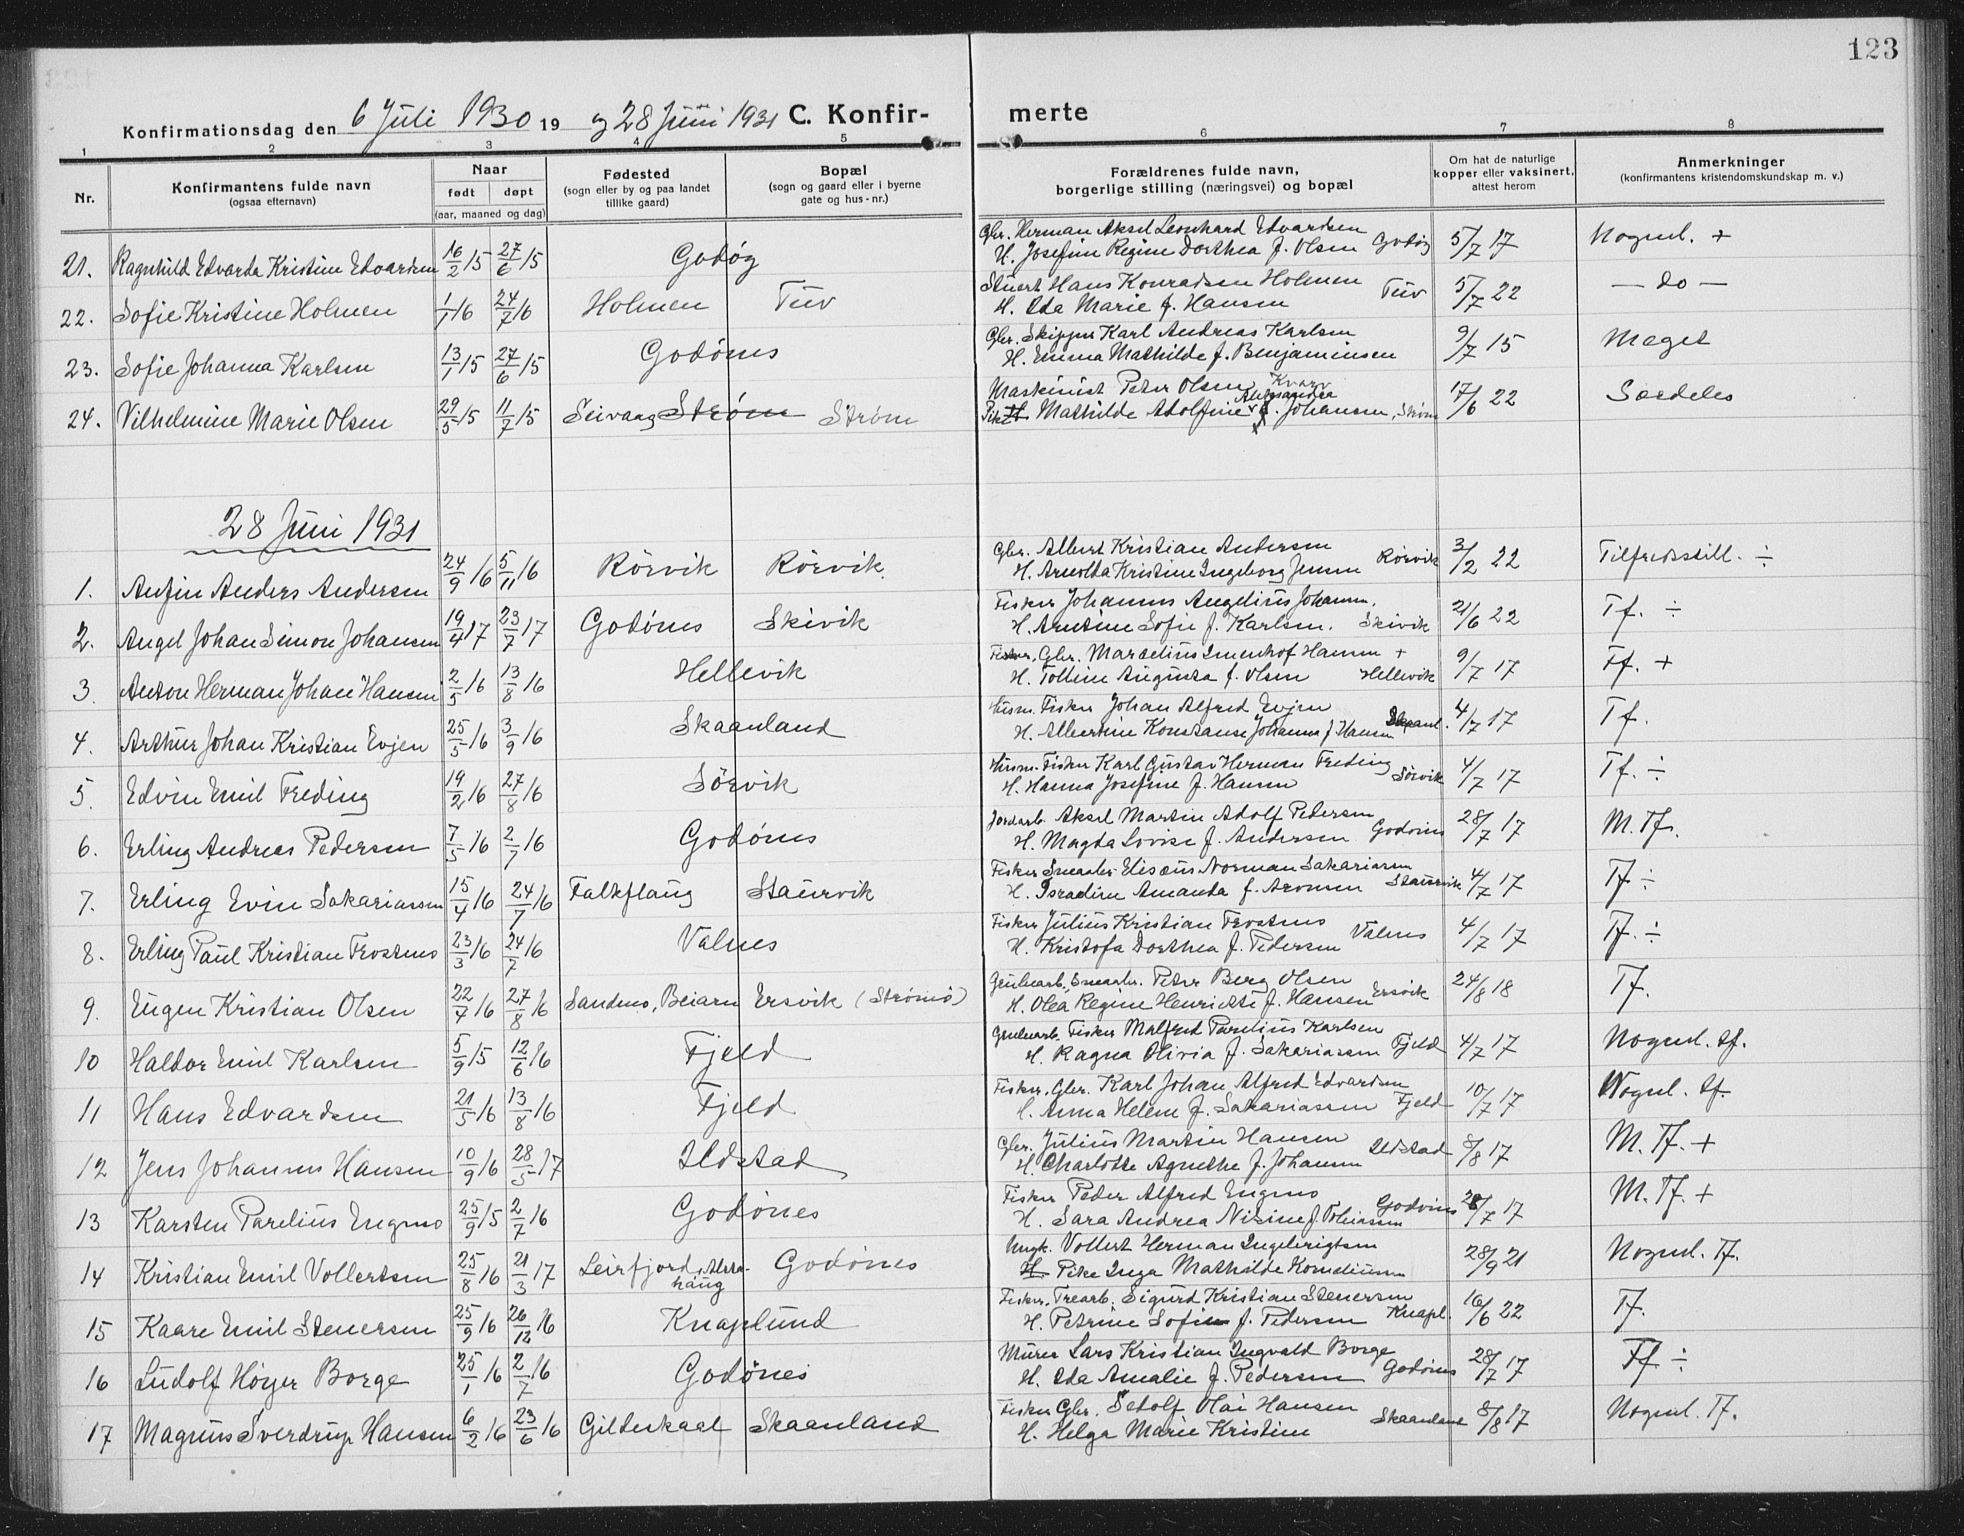 123
Konfirmationsdag den 6 Juli 1930 19 og 28 Juni 1931 C. Konfir- merte
1 2 3 4 5 6 7 8
Nr. Konfirmantens fulde navn (ogsaa efternavn) Naar født døpt (aar, maaned og dag) Fødested (sogn eller by og paa landet tillike gaard) Bopæl (sogn og gaard eller i byerne gate og hus-nr.) Forældrenes fulde navn, borgerlige stilling (næringsvei) og bopæl Om hat de naturlige kopper eller vaksinert, attest herom Anmerkninger (konfirmantens kristendomskundskap m. v.)
Gbr. Herman Aksel Leonhard Edvardsen
21. Ragnhild Edvarda Kristine Edvardsen 16/2 15 27/6 15 Godøy H. Josefine Regine Dorthea f. Olsen Godøy 5/7 17 Nogml. +
Stuert Hans Konradsen Holmen
22. Sofie Kristine Holmen 1/1 16 24/7 16 Holmen Tuv H. Ida Marie f. Hansen Tuv 5/7 22 — do —
Gbr. Skipper Karl Andreas Karlsen
23. Sofie Johanna Karlsen 13/1 15 27/6 15 Godønes H. Emma Mathilde f. Benjaminsen 9/7 15 Meget
Maskinist Peter Olsen Kvarv
24. Vilhelmine Marie Olsen 29/5 15 11/7 15 Seivaag Strøm Strøm Pike H. Mathilde Adolfine Aleksandra f. Johansen, Strøm 17/6 22 Særdeles
28 Juni 1931
Gbr. Albert Kristian Andersen
1. Anfin Anders Andersen 24/9 16 5/11 16 Rörvik Rörvik H. Arnolda Kristine Ingeborg Jensen Rörvik 3/2 22 Tilfredsstill. ÷
Fisker Johannes Angelius Johansen.
2. Angel Johan Simon Johansen 19/4 17 23/7 17 Godønes Skivik H. Arntine Sofie f. Karlsen. Skivik 21/6 22 Tf. ÷
Fisker, Gbr. Marselius Imenhof Hansen +
3. Anton Herman Johan Hansen 2/5 16 13/8 16 Hellevik H. Tolline Augusta f. Olsen Hellevik 9/7 17 Tf. +
Husm. Fisker Johan Alfred Evjen
4. Arthur Johan Kristian Evjen 25/5 16 3/9 16 Skaanland H. Albertine Konstanse Johanna f Hansen Skaanl. 4/7 17 Tf.
Husm. Fisker Karl Gustav Herman Freding
5. Edvin Emil Freding 19/2 16 27/8 16 Sörvik H. Hanna Josefine f. Hansen Sörvik 4/7 17 Tf. ÷
Jordarb. Aksel Martin Adolf Pedersen
6. Erling Andreas Pedersen 7/5 16 2/7 16 Godönes H. Magda Lovise f. Andersen Godönes 28/7 17 M. Tf.
Fisker Smaabr. Elisæus Norman Sakariassen
7. Erling Evin Sakariassen 15/4 16 24/7 16 Falkflaug Staurvik H. Isradine Amanda f. Aronsen Staurvik 4/7 17 Tf ÷
Fisker Julius Kristian Frostenes
8. Erling Paul Kristian Frostenes 23/3 16 24/7 16 Valnes H. Kristofa Dorthea f. Pedersen Valnes 4/7 17 Tf. ÷
Grubearb, Smaabr. Peter Berg Olsen
9. Eugen Kristian Olsen 22/4 16 27/8 16 Sandnes, Beiarn Ersvik (Strømø) H. Olea Regine Henriette f. Hansen Ersvik 24/8 18 Tf.
Grubearb. Fisker Malfred Parelius Karlsen
10 Haldor Emil Karlsen 5/9 15 12/6 16 Fjeld H. Ragna Olivia f. Sakariassen Fjeld 4/7 17 Nogml. tf.
Fisker, Gbr. Karl Johan Alfred Edvardsen
11 Hans Edvardsen 21/5 16 13/8 16 Fjeld H. Anna Helene f. Sakariassen Fjeld 10/7 17 Nogml. tf.
Gbr. Julius Martin Hansen
12 Jens Johannes Hansen 10/9 16 28/5 17 Ildstad H. Charlotte Agnethe f. Johansen Ildstad 8/8 17 M. Tf. +
Fisker Peder Alfred Engmo
13 Karsten Parelius Engmo 25/9 15 2/7 16 Godønes H. Sara Andrea Nisine f. Tobiassen Godönes 28/7 17 M. Tf. +
Ungk. Vollert Herman Ingebrigtsen
14 Kristian Emil Vollertsen 25/8 16 21/3 17 Leirfjord, Alstahaug Godönes H. Pike Inga Mathilde Korneliussen 28/9 21 Nogml. Tf.
Fisker, Trearb. Sigurd Kristian Stenersen
15 Kaare Emil Stenersen 25/9 16 26/12 16 Knaplund H. Petrine Sofie f. Pedersen Knapl. 16/6 22 Tf.
Murer Lars Kristian Ingvald Borge
16 Ludolf Höyer Borge 25/1 16 2/7 16 Godønes H. Ida Amalie f. Pedersen Godönes 28/7 17 Tf ÷
Fisker Gbr. Sedolf Olai Hansen
17 Magnus Sverdrup Hansen 6/2 16 23/6 16 Gildeskaal Skaanland H. Helga Marie Kristine Skaanland 8/8 17 Nogml. Tf.